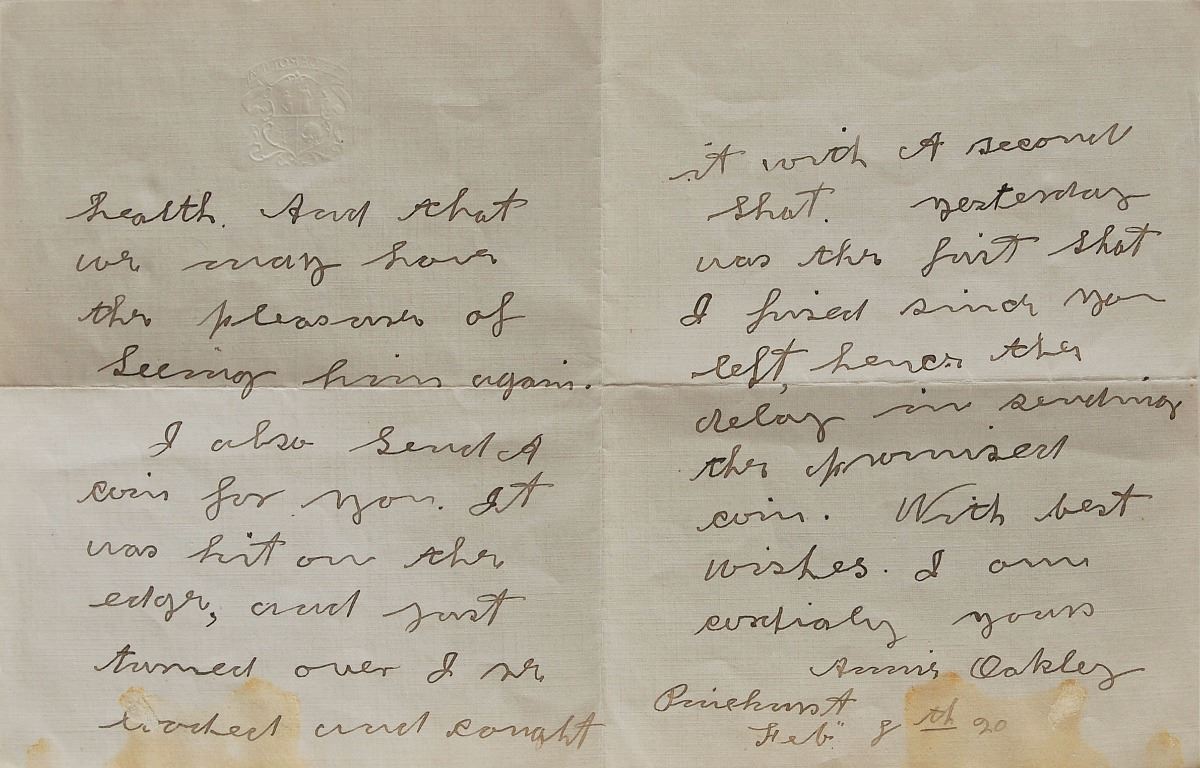 health. And that
we may have
the pleasure of
seeing him again.
I also send A
coin for you. It
was hit on the
edge, and just
turned over I re
loaded and caught
it with A second
shot. yesterday
was the first shot
I fired since you
left, hence the
delay in sending
the promised
coin. With best
wishes. I am
cordialy yours
Annie Oakley
Pinehurst
Feb" 8th 20